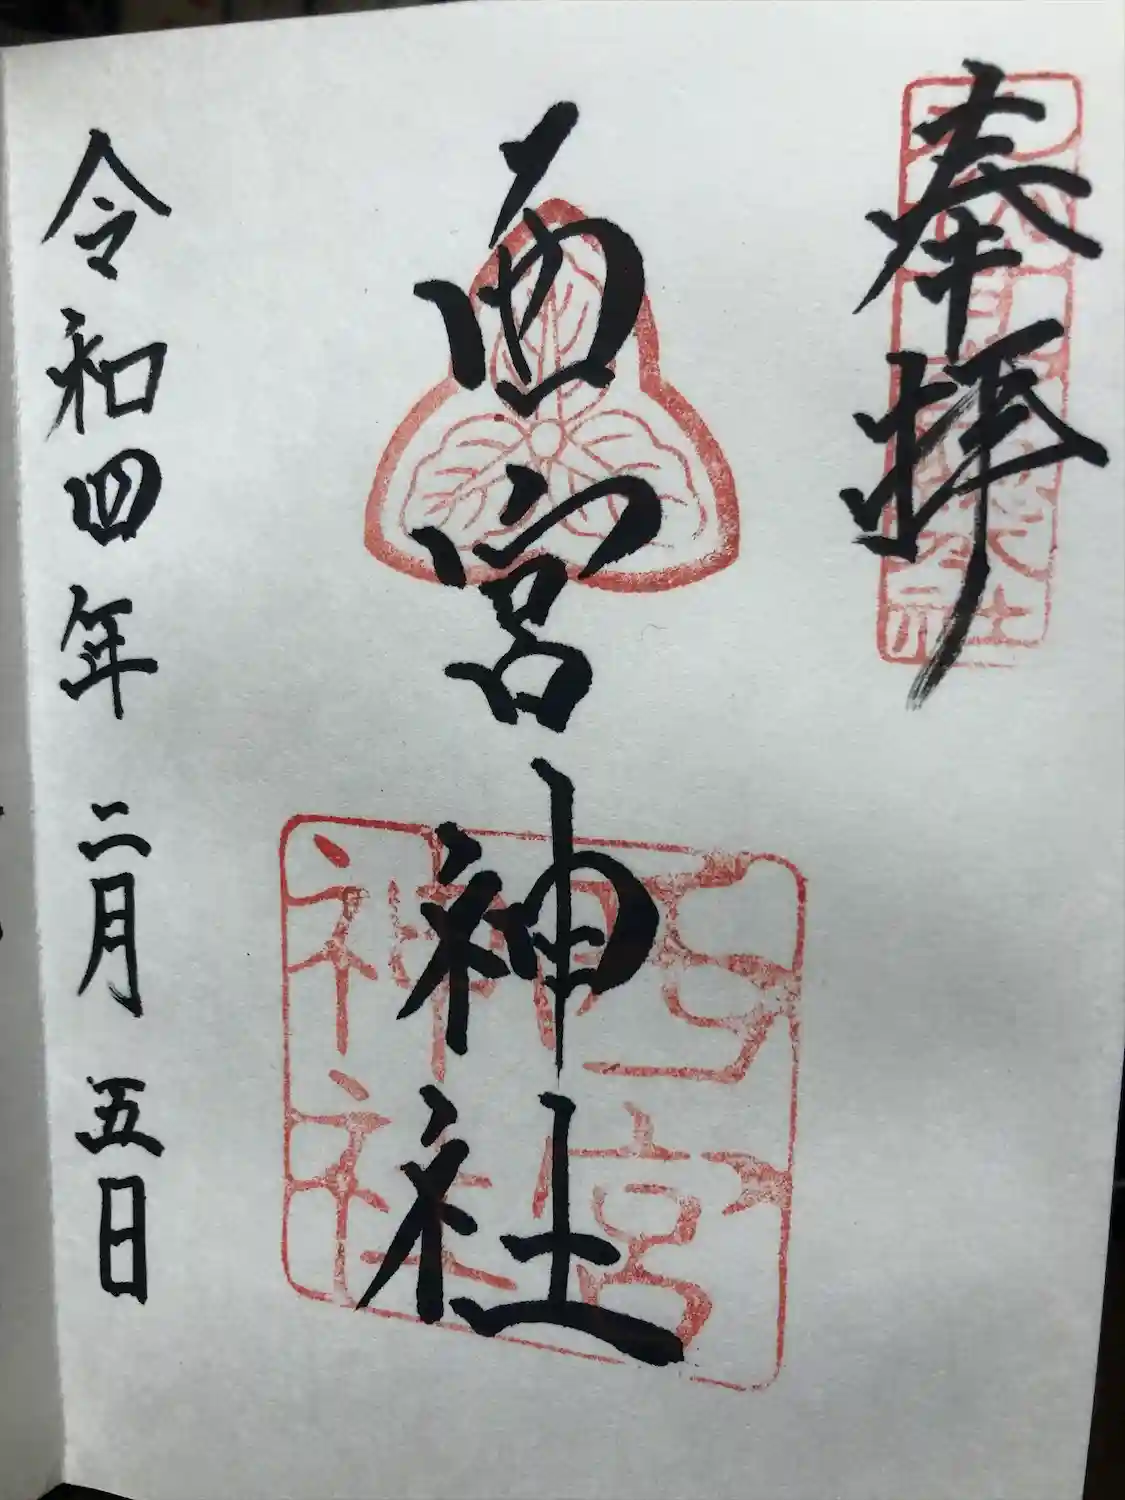 奉拝
西宮神社
令和四年二月五日
西宮神社